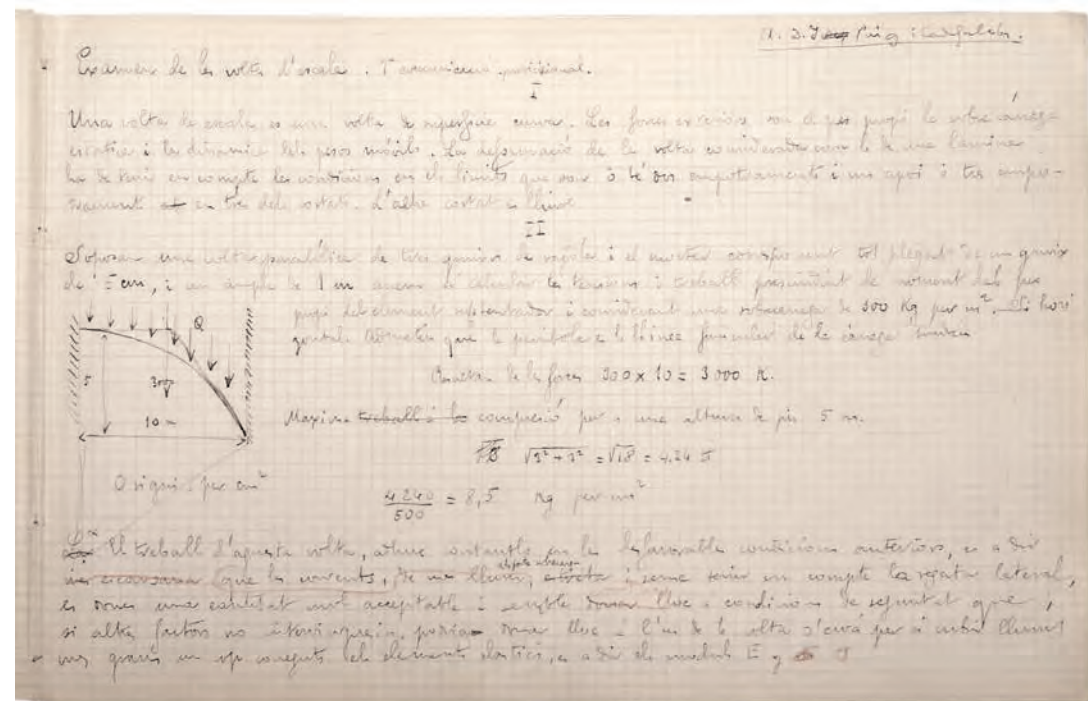 Puig i Cadafalch.
Examen de les voltes d'escala. Comunicació provisional.
I
Una volta de escala es una volta de superficie curva. Les forces exteriors son el pes propi la sobre càrrega
estatica i la dinamica dels pesos mòvils. La deformació de la volta considerada com la de una lamina
ha de tenir en compte les condicions en els limits que son ò bé dos empotraments i un apoi ò tres empo-
traments en tres dels costats. L'altre costat es lliure
II
Soposem una volta parabòlica de tres gruixos de rajola i el morter corresponent tot plegat de un gruix
de 15 cm, i un ample de 1 m anem a calcular les tensions i treball prescindint de moment del pes
propi del element sustentador i considerant una sobrecarrega de 300 Kg per m². hori
zontal. Admetem que la parabola es la linea funicular de la càrrega
Q
5
300
10 m
de les forces 300 x 10 = 3000 K.
Maxima treball à la compresió per a una altura de 5 m.
√18 √3² + 3² = √18 = 4,24 T
O sigui per cm²
4240 / 500 = 8,5 Kg per cm²
El treball d'aquesta volta, adhuc contantla en les desfavorable condicions anteriors, es a dir
que les corrents, de una lliure, i sense tenir en compte la rajola lateral,
es doncs una cantitat molt acceptable i sembla donar lloc a condicions de seguretat que,
si altres factors no intervinguesin, podria donar lloc a l'us de la volta per a cubrir llums
mes grans un cop coneguts els elements elastics, es a dir els moduls E y J